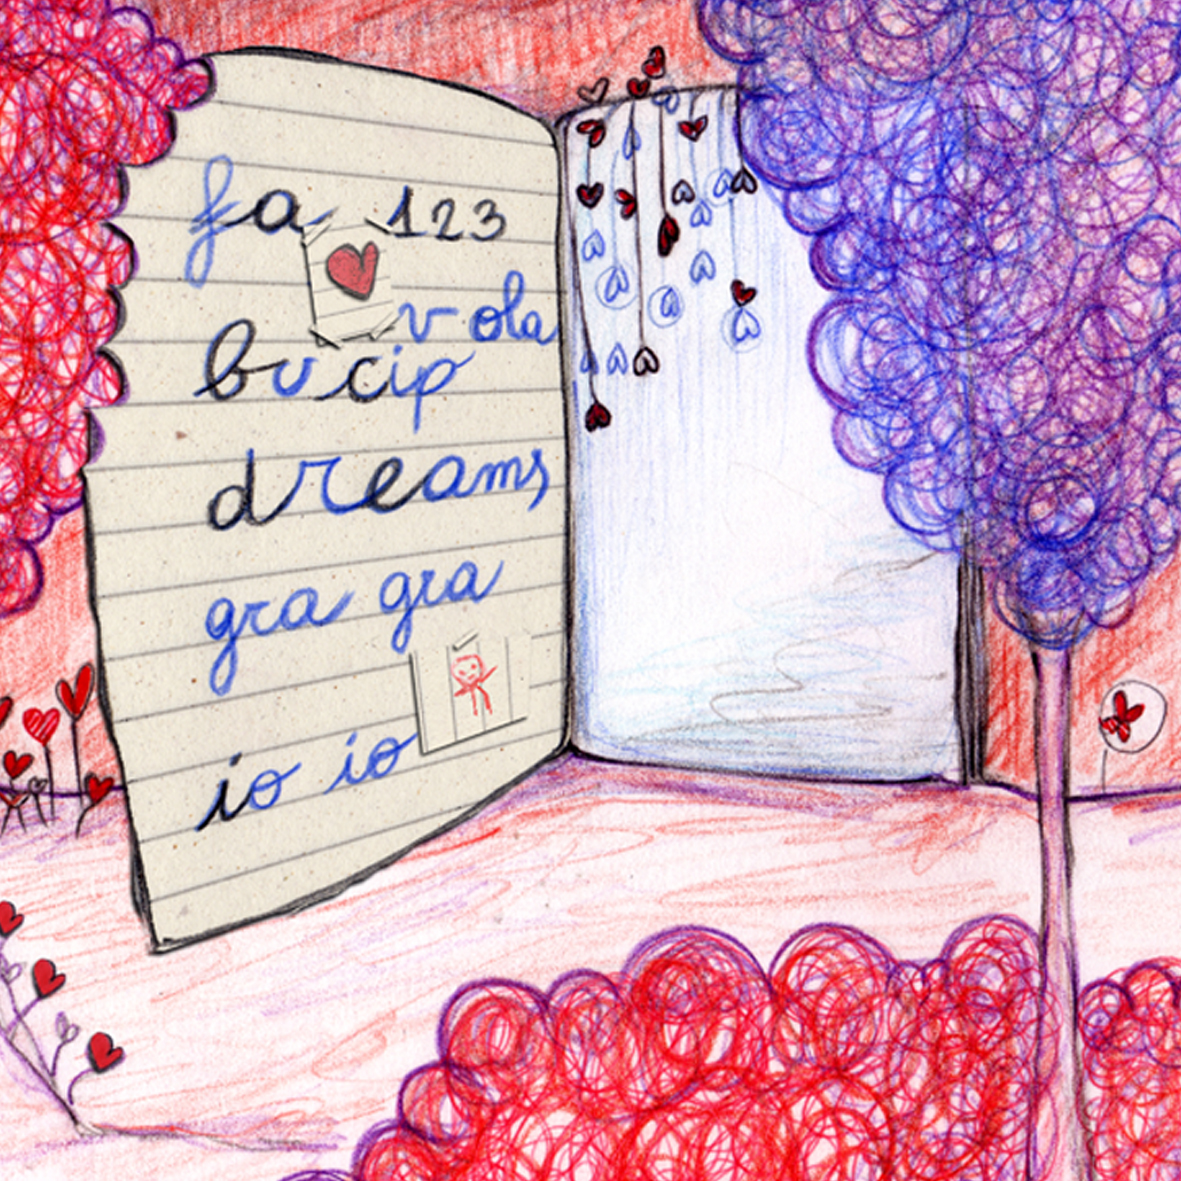 fa 123
vola
bucip
dreams
gra gra
io io